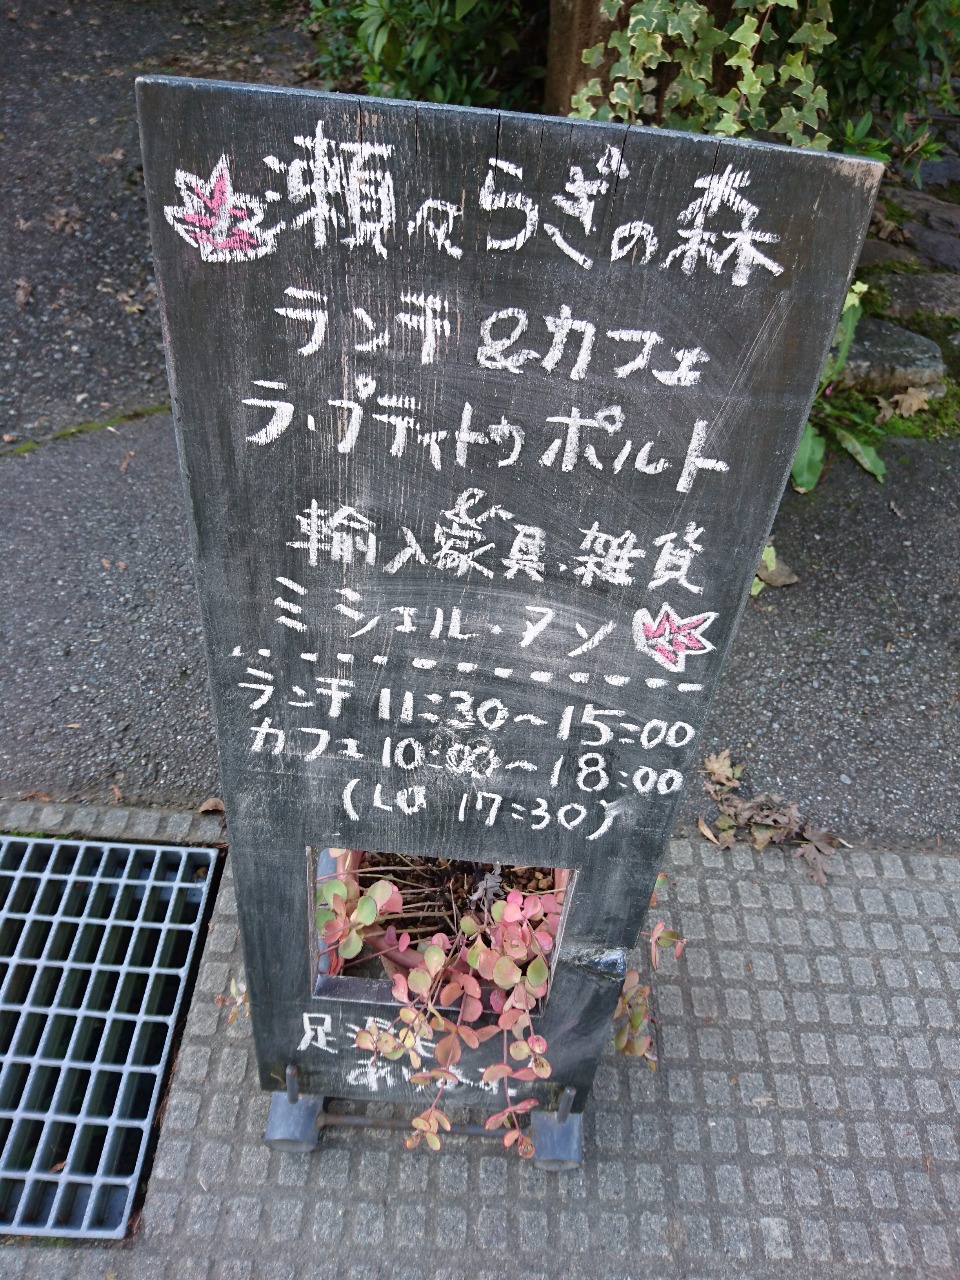 瀬々らぎの森
ランチ&カフェ
ラ・プティトゥ ポルト
&
輸入家具・雑貨
ミシェル・アン
ランチ 11:30~15:00
カフェ 10:00~18:00
(LO 17:30)
足湯
あります